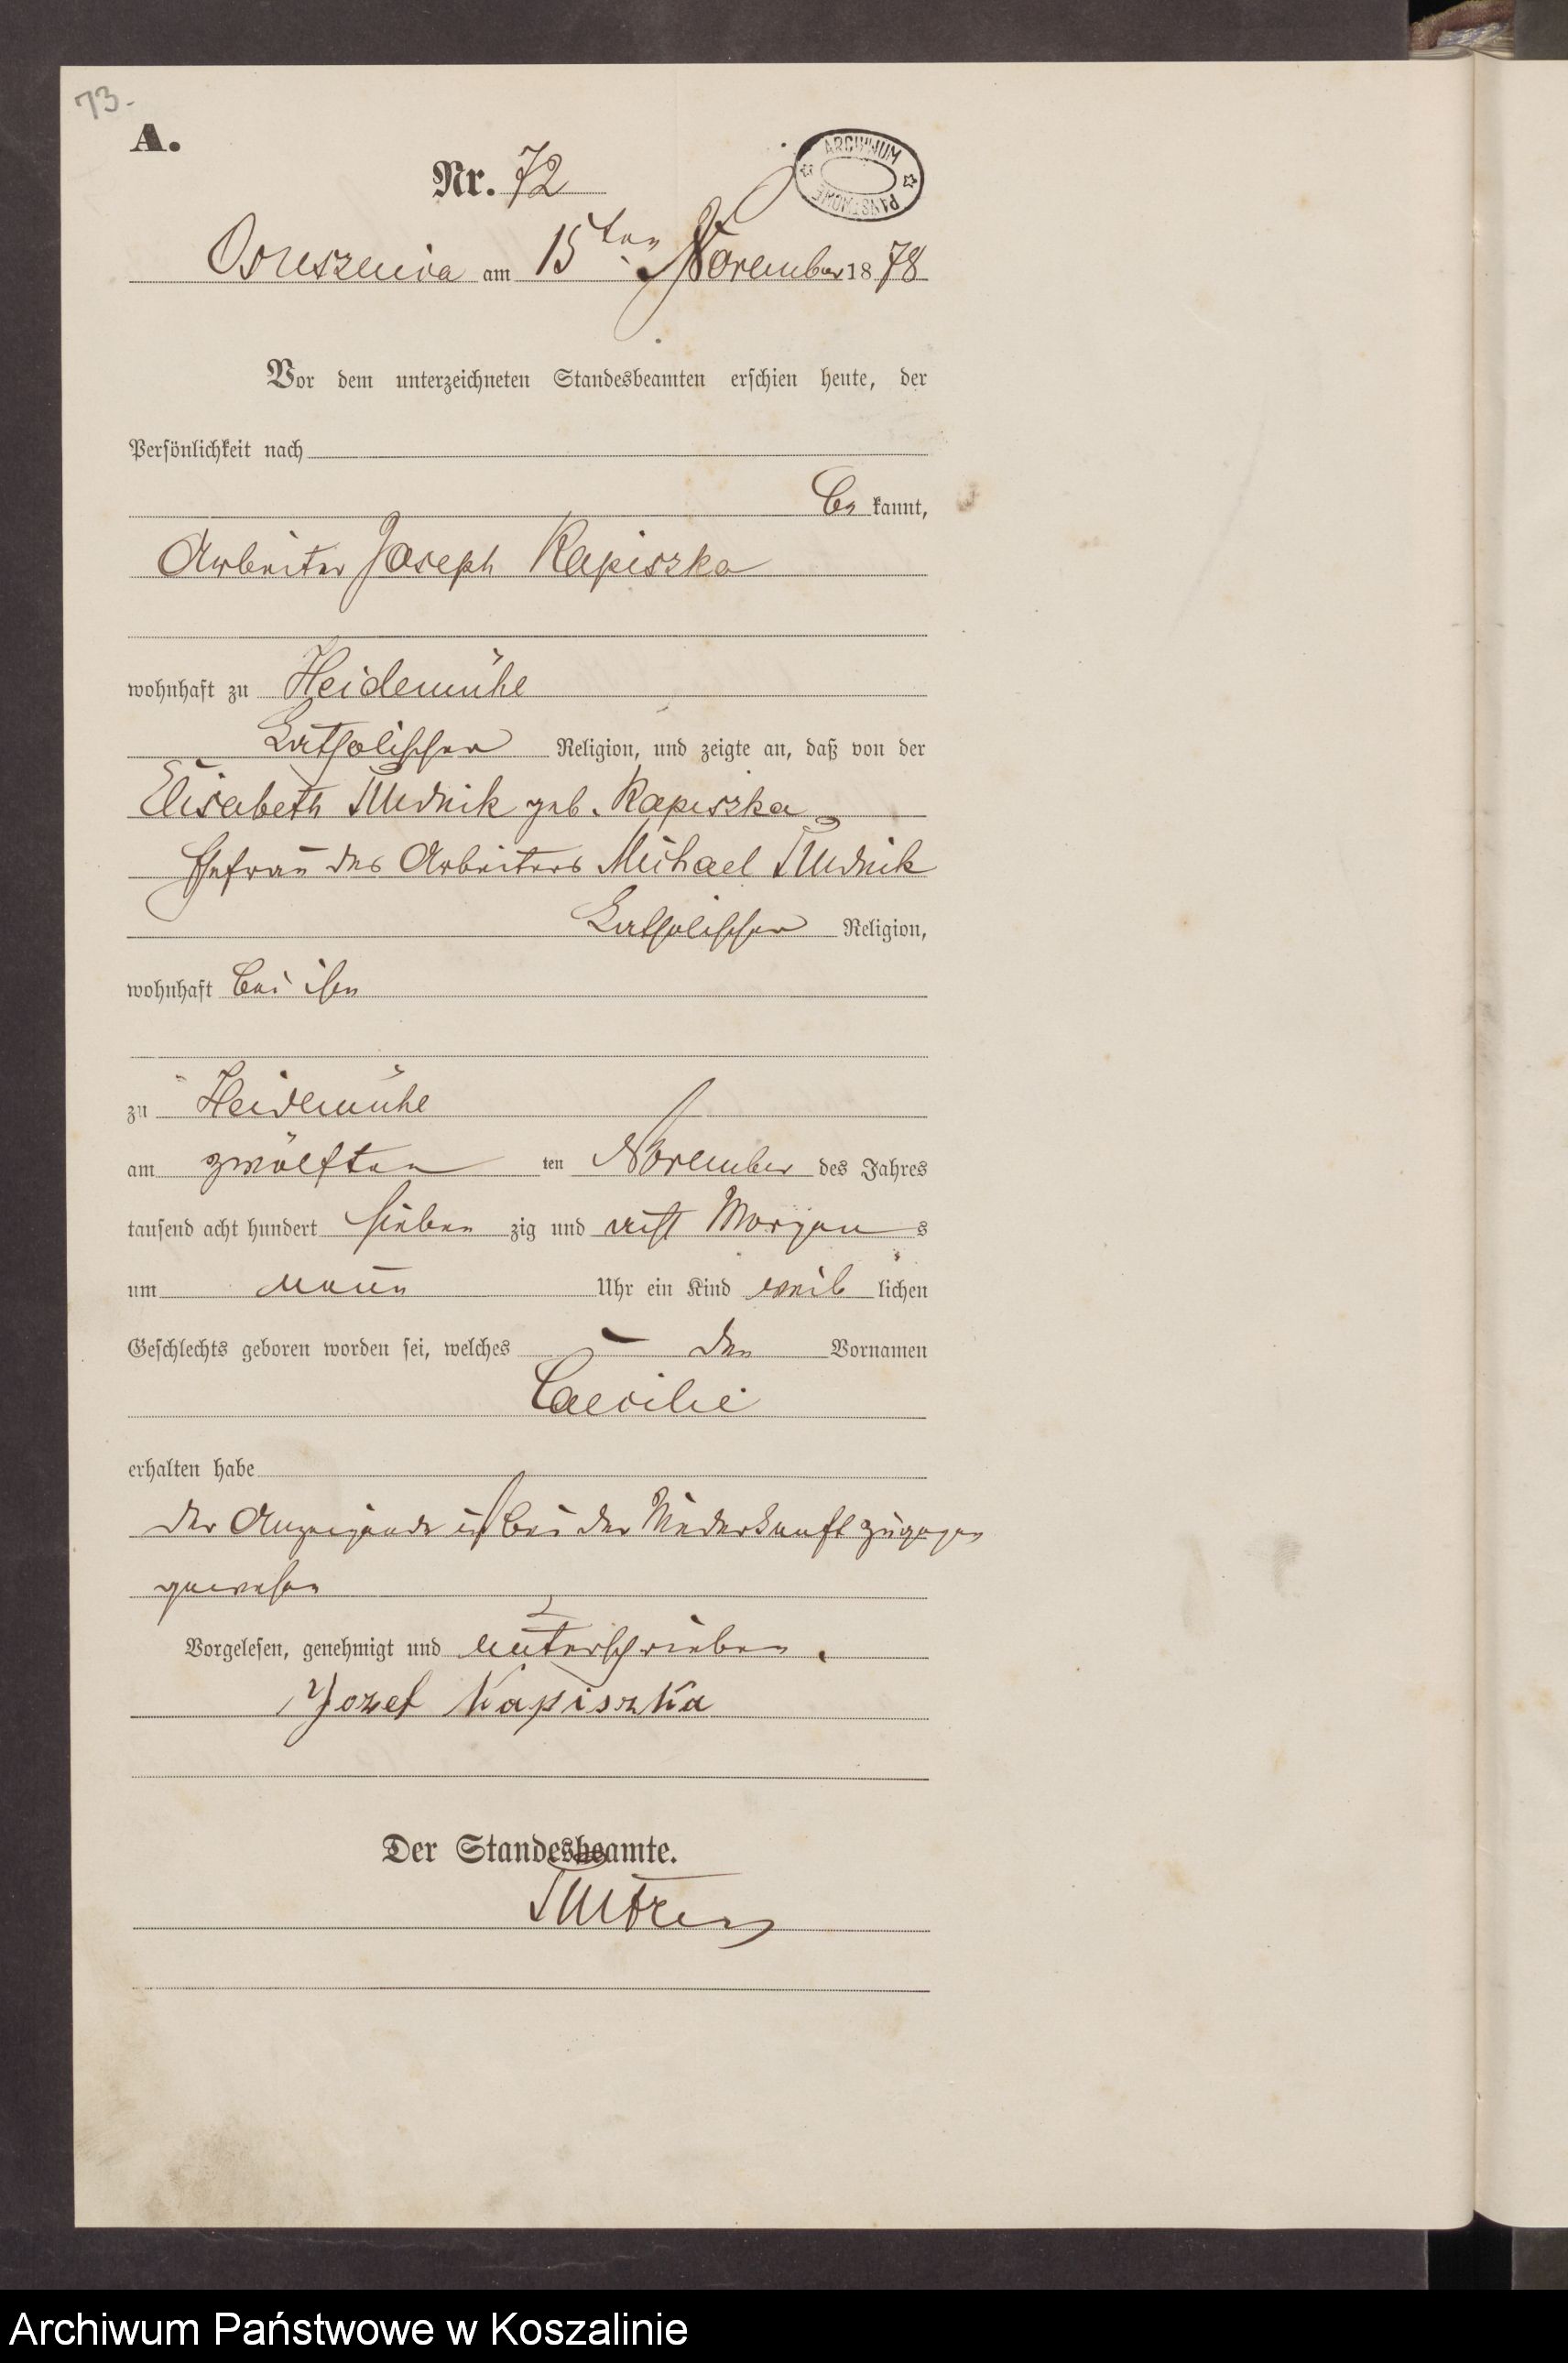 73.
A.
Nr. 72
ARCHIWUM PAŃSTWOWE
am 15ten November 1878
Vor dem unterzeichneten Standesbeamten erschien heute, der
Persönlichkeit nach
be kannt,
Arbeiter Joseph Kapiszka
wohnhaft zu Heidemühe
katholischer Religion, und zeigte an, daß von der
Elisabeth Rudnik geb. Kapiszka
Ehefrau des Arbeiters Michael Rudnik
katholischer Religion,
wohnhaft bei ihm
zu Heidemühe
am zwölften ten November des Jahres
tausend acht hundert sieben zig und acht Morgen s
um neun Uhr ein Kind weib lichen
Geschlechts geboren worden sei, welches – den Vornamen
Caecilie
erhalten habe
der Anzeigende ist bei der Niederkunft zugegen
gewesen
Vorgelesen, genehmigt und unterschrieben.
Jozef Kapiszka
Der Standesbeamte.
Archiwum Państwowe w Koszalinie